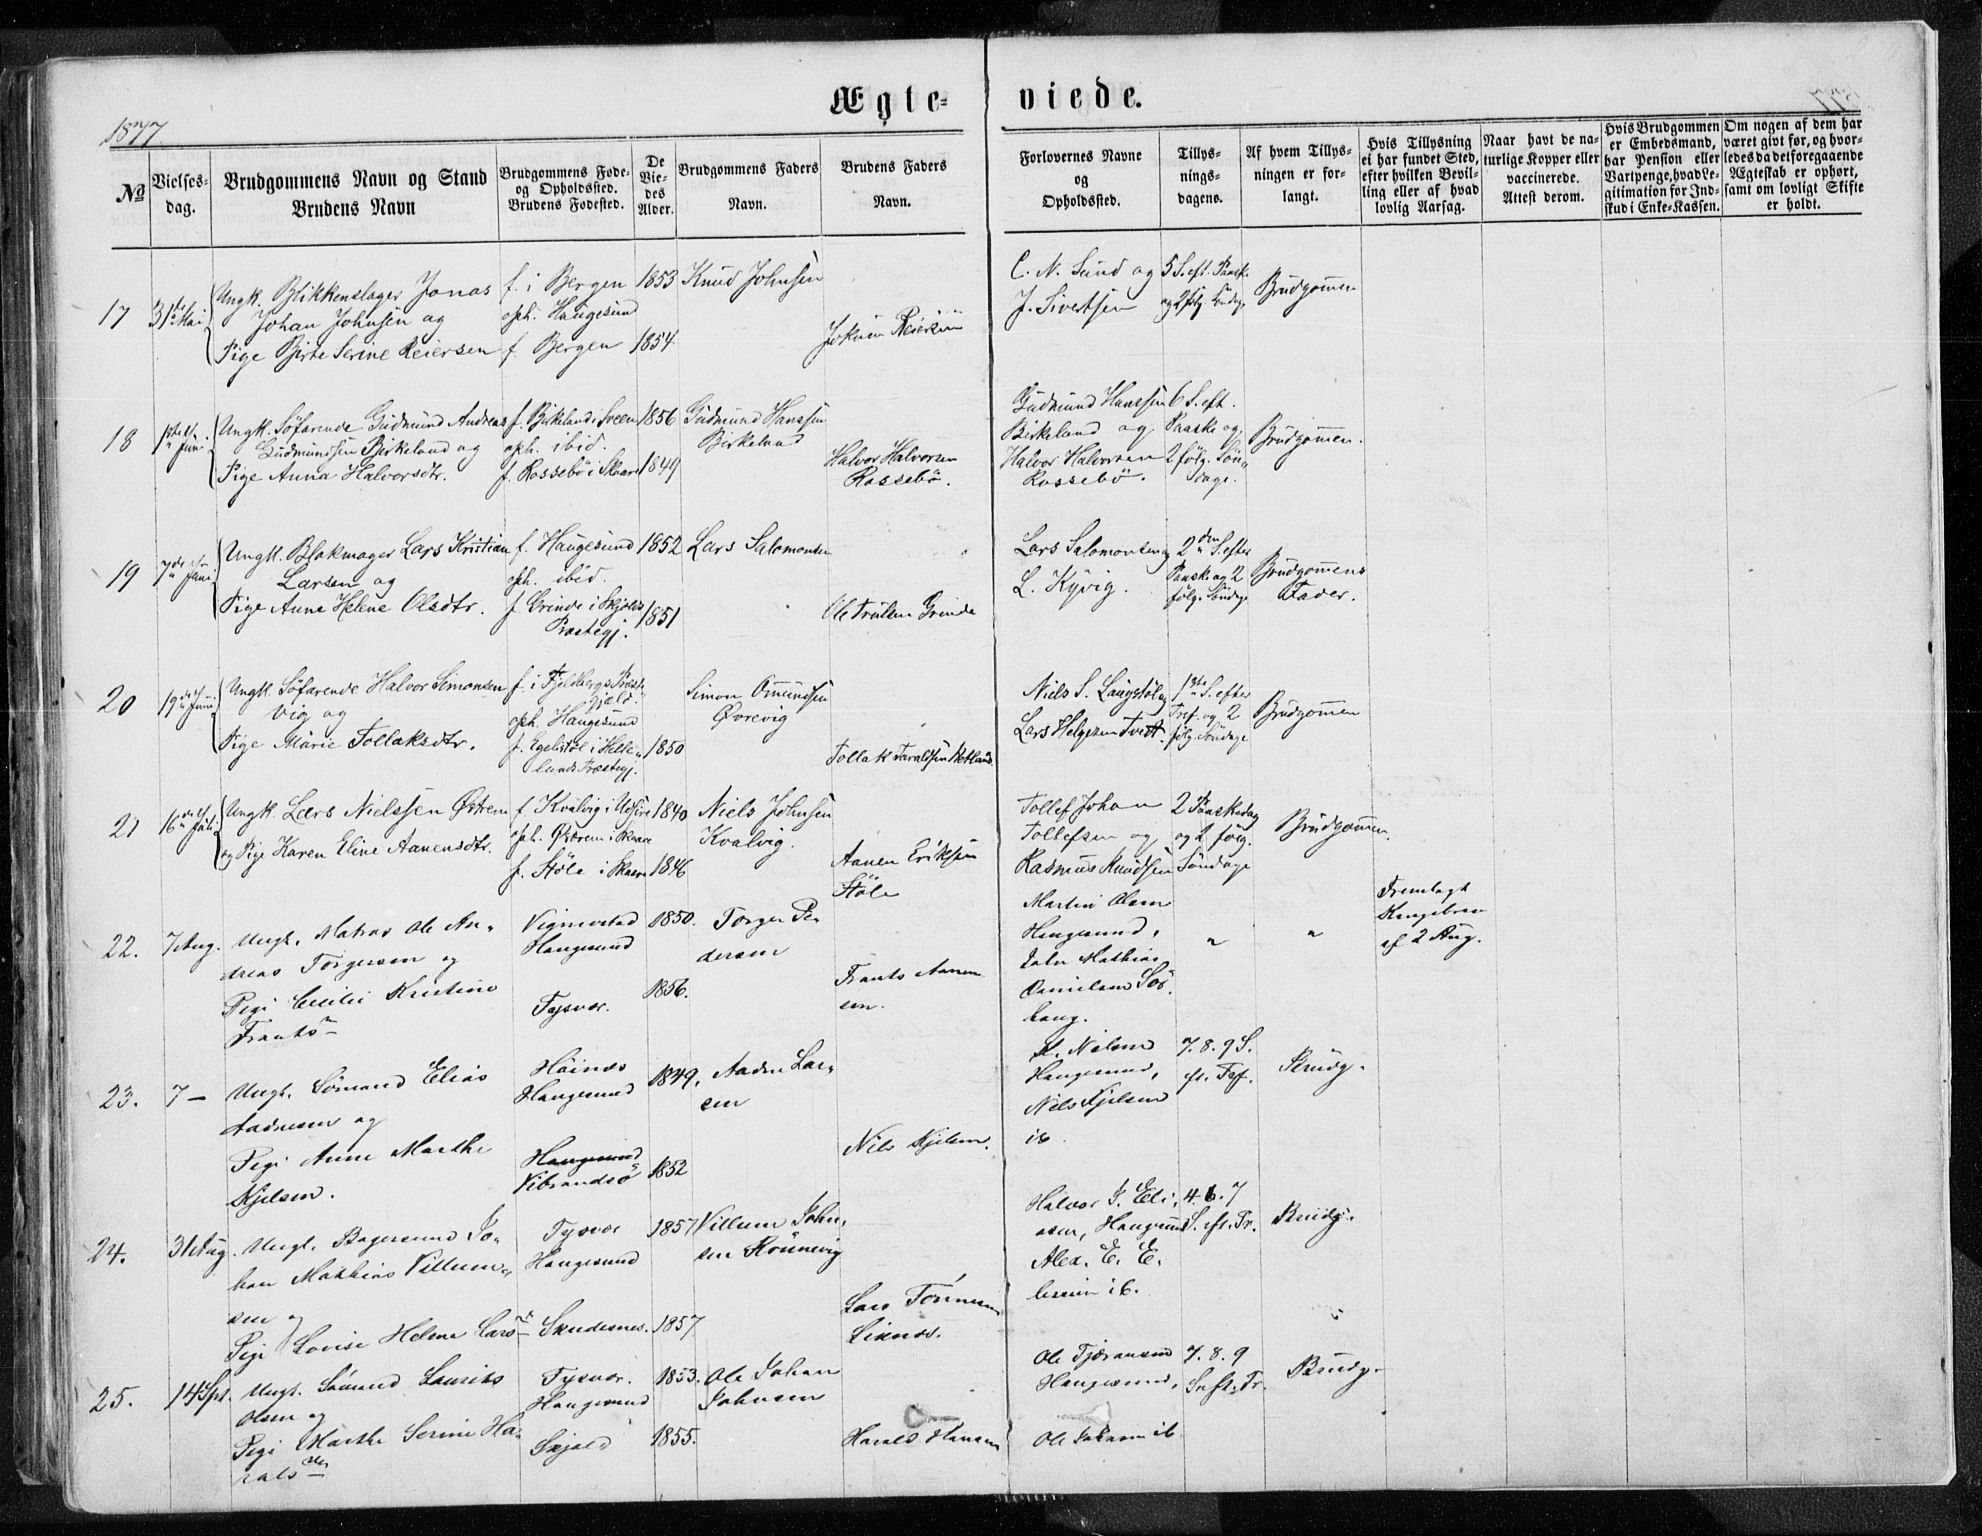 1877.
Ægte- viede.
№
Vielses-
dag.
Brudgommens Navn og Stand
Brudens Navn
Brudgommens Føde-
og Opholdssted.
Brudens Fødested.
De
Vie-
des
Alder.
Brudgommens Faders
Navn.
Brudens Faders
Navn.
Forlovernes Navne
og
Opholdssted.
Tillys-
nings-
dagene.
Af hvem Tillys-
ningen er for-
langt.
Hvis Tillysning
ei har fundet Sted,
efter hvilken Bevil-
ling eller af hvad
lovlig Aarsag.
Naar havt de na-
turlige Kopper eller
vaccinerede.
Attest derom.
Hvis Brudgommen
er Embedsmand,
har Pension eller
Vartpenge, hvad Le-
gitimation for Ind-
skud i Enke-Kassen.
Om nogen af dem har
været givt før, og hvor-
ledes da det foregaaende
Ægteskab er ophørt,
samt om lovligt Skifte
er holdt.
17 31te Mai
Ungk. Blikkenslager Jonas
Johan Johnsen og
Pige Birte Serine Reiersen
f. i Bergen
oph. Haugesund
f. Bergen
1853
1854
Knud Johnsen
Reiersen
C. N. Sund og
J. Sivertsen
5 S. eft. Paask.
og 2 følg. Søndage
Brudgommen
18 Juni
Ungk. Søfarende Gudmund Andreas
Gudmundsen Birkeland og
Pige Anna Halvorsdtr.
f. Birkeland i Sveen
oph. ibid.
f. Rossebö i Skaare
1856
1849
Gudmund Hanssen
Birkeland
Halvor Halvorsen
Rossebö.
Gudmund Hanssen
Birkeland og
Halvor Halvorsen
Rossebö.
6 S. eft.
Paaske og
2 følg. Søn-
dage.
Brudgommen.
19 7de Juni
Ungk. Blokmager Lars Kristian
Larsen og
Pige Anne Helene Olsdtr.
f. Haugesund
oph. ibid.
f. Grinde i Skjolds
Præstegj.
1852
1851
Lars Salomonsen
Ole Trulsen Grinde
Lars Salomonsen og
L. Kyvig.
2den S. efter
Paaske og 2
følg. Søndage
Brudgommens
Fader.
20 19de Juni
Ungk. Søfarende Halvor Simonsen
Vig og
Pige Marie Tollaksdtr.
f. i Fjeldbergs Præste-
gjeld.
oph. Haugesund
f. Egelstøl i Helle-
lands Præstegj.
1850
Simon Omundsen
Øvrevig
Tollak Taraldsen Hetland
Niels S. Langstøl og
Lars Helgesen Tvett.
1ste S. efter
Tref. og 2
følg. Søndage
Brudgommen
21 16de Juli
Ungk. Lars Nielssen Østrem
og Pige Karen Eline Aanensdtr.
f. Kvalvig i Udsire
oph. Østrem i Skaare
f. Støle i Skaare
1840
1846
Niels Johnsen
Kvalvig.
Aanen Eriksen
Støle
Tollef Johan
Tollefsen og
Rasmus Knudsen
2 Paaskedag
og 2 følg.
Søndage
Brudgommen.
22. 7 Aug.
Ungk. Matros Ole An-
dreas Torgersen og
Pige Cecilie Kristine
Frants
Vignestad
Haugesund
Tysvær.
1850.
1856.
Torger Pe-
dersen
Frants Aanen-
sen.
Martin Olsen
Haugesund,
Mathias
Danielsen Sör-
haug.
"
"
Fremlagt
Kongebrev
af 2 Aug.
23. 7 —
Ungk. Sømand Elias
Aadnesen og
Pige Anne Marthe
Kjelsen.
Høines
Haugesund
Haugesund
Vibrandsö
1849.
1852
Aadne Lar-
sen
Nils Kjelsen.
Nilsen
Haugesund,
Nils Kjelsen
ib.
7. 8. 9 S.
eft. Tref.
Brudg.
24. 31 Aug.
Ungk. Bagersvend Jo-
han Mathias Villum-
sen og
Pige Lovise Helene Lars
Tysvær
Haugesund
Skudesnes.
1857
1857
Villum John-
sen Rönnevig
Lars Tönnesen
Liknes.
Halvor J. Eli-
asen, Haugesund
Alex. E. E.
ib.
4. 6. 7
S. eft. Tr.
Brudg.
25. 14 Spt.
Ungk. Sömand Laurits
Olsen og
Pige Marthe Serine Ha-
rals
Tysvær.
Haugesund
Skjold
1853.
1855.
Ole Johan
Johnsen
Harald Hansen
Ole Tjøransen
Haugesund,
Ole Johnsen ib.
7. 8. 9
S. eft. Tr.
Brudg.